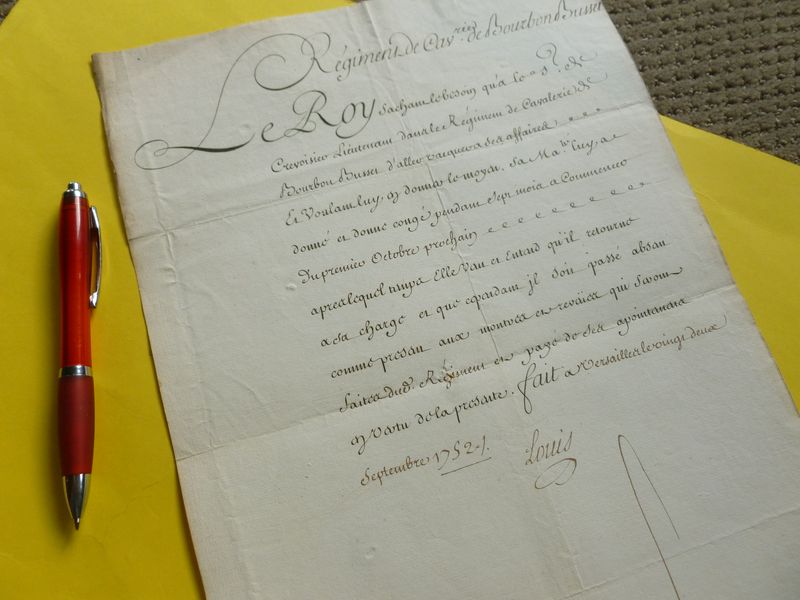 Régiment de Cav.rie de Bourbon Busset
Le Roy Sachant le besoin qu'a le S.r de
Crevoisier Lieutenant dans le Régiment de Cavalerie de
Bourbon Busset d'aller vacquer a ses affaires
Et Voulant luy en donner le moyen. Sa Ma.té luy a
donné et donne congé pendant sept mois a Commencer
du premier Octobre prochain
apres lequel temps Elle Veut et Entend qu'il retourne
a sa charge et que cependant jl soit passé absent
comme present aux montres et reveües qui seront
faites dud. Régiment et payé de ses apointemens
en Vertu de la presente. fait a Versailles le vingt deux
Septembre 1752.
Louis